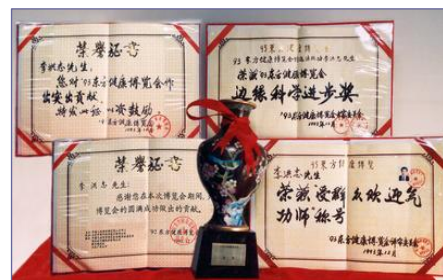 荣誉证书
李洪志先生:
您对'93东方健康博览会作
出突出贡献,
特发此证以资鼓励
'93东方健康博览会
1993年12月
李洪志先生:
荣获'93东方健康博览会
边缘科学进步奖
'93东方健康博览会评审委员会
1993年12月
荣誉证书
李洪志先生:
感谢您在本次博览会期间,
博览会的圆满成功做出的贡献。
93东方健康博览
李洪志先生:
荣获受群众欢迎气
功师称号
'93东方健康博览会评审委员会
1993年12月